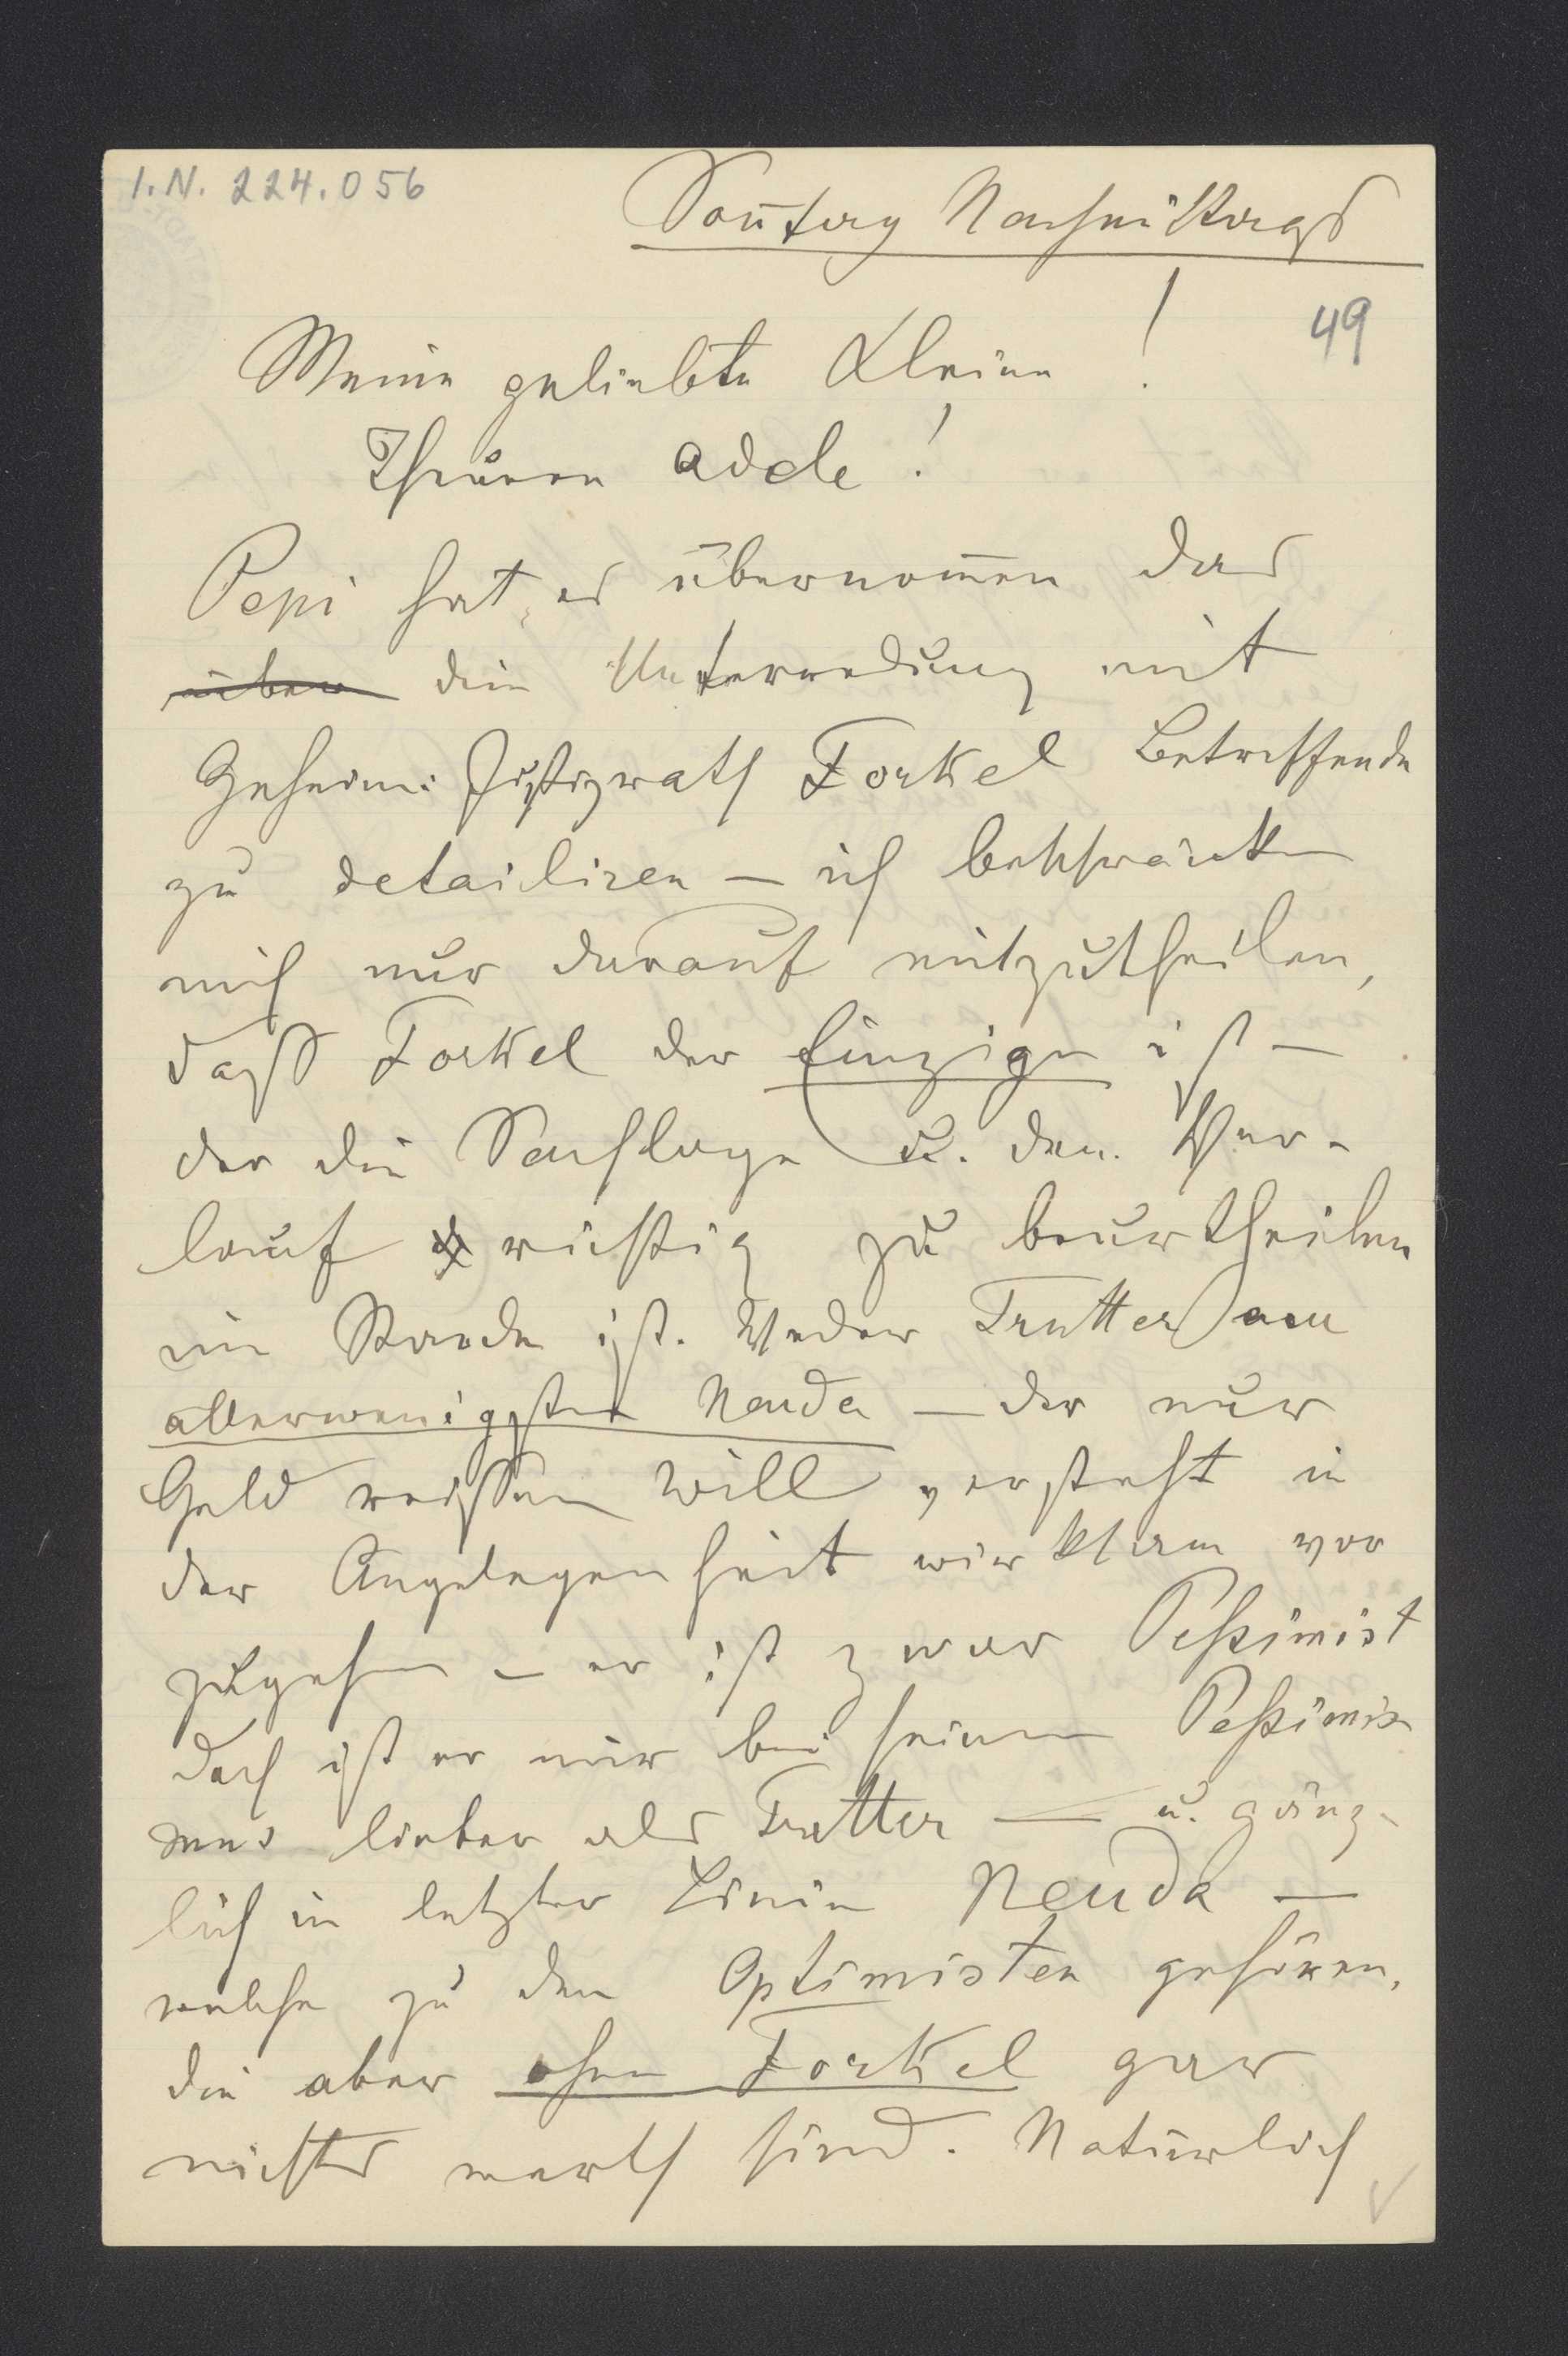 I.N. 224.056
Soñtag Nachmittags
49
Meine geliebte Kleine!
Theuere Adele!
Pepi hat es übernom̄en das
über die Unterredung mit
Geheim: Justizrath Forkel Betreffende
zu detailiren — ich beschränke
mich nur darauf mitzutheilen,
dass Forkel der Einzige ist —
der die Sachlage u. den Ver-
lauf richtig zu beurtheilen
im Stande ist. Weder Trutter am
allerwenigsten Neuda — der nur
Geld reissen will versteht in
der Angelegenheit wirksam vor
zugehen — er ist zwar Peßimist
doch ist er mir bei seinem Peßimis
mus lieber als Trutter — u. gänz-
lich in letzter Linie Neuda —
welche zu den Optimisten gehören,
die aber ohne Forkel gar
nichts werth sind. Natürlich